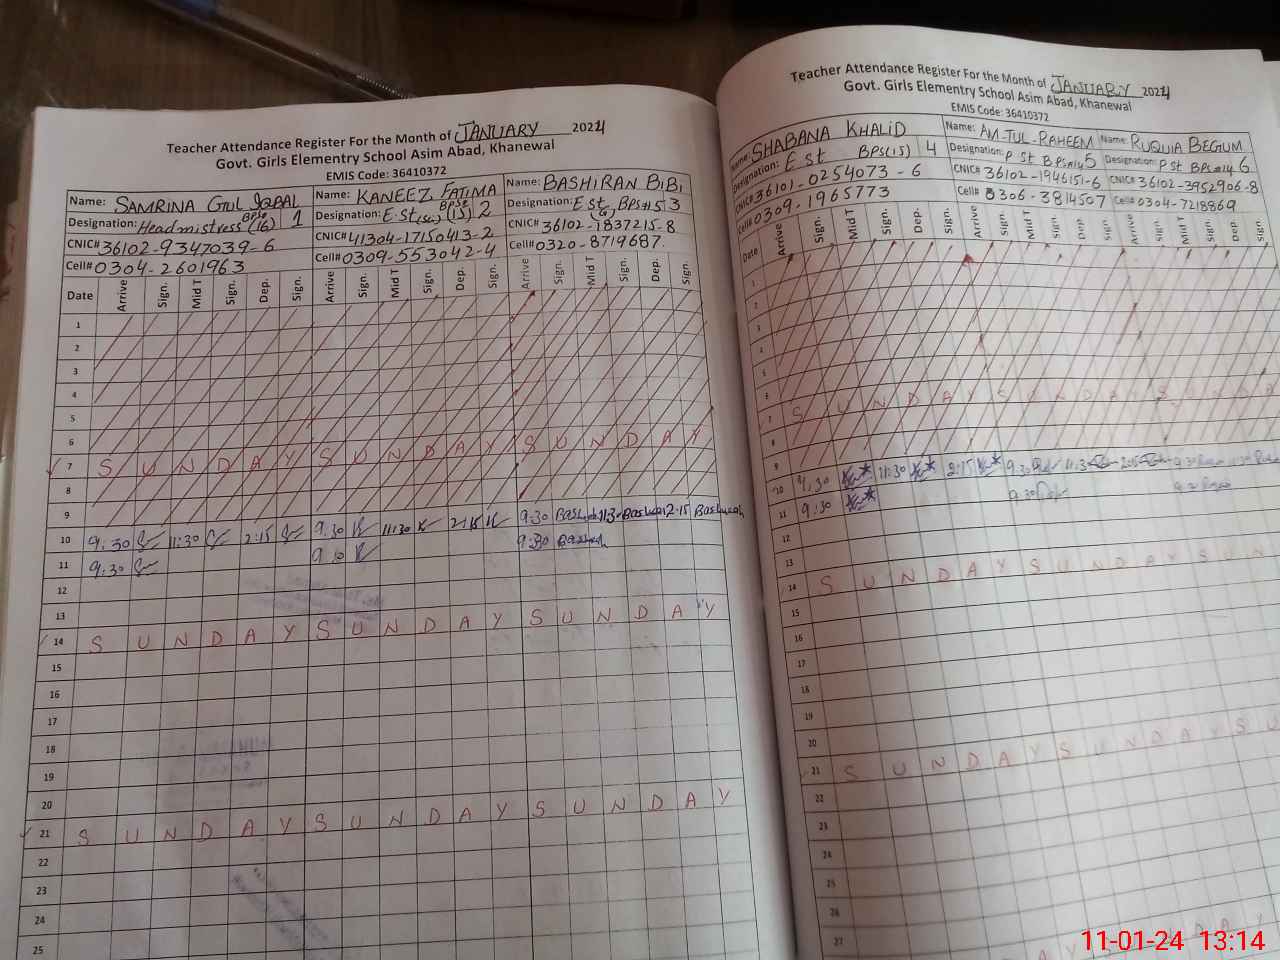 Teacher Attendance Register For the Month of JANUARY 2024
Govt. Girls Elementry School Asim Abad, Khanewal
EMIS Code: 36410372
Name: SAMRINA GUL IQBAL Name: KANEEZ FATIMA Name: BASHIRAN BIBI
Designation: Headmistress (16) 1 Designation: E.St (15) 2 Designation: E St BPS#15 3
CNIC# 36102-9347039-6 CNIC# 41304-17150413-2 CNIC# 36102-7837215-8
Cell# 0304-2601963 Cell# 0309-553042-4 Cell# 0320-8719687
Date Arrive Sign. Mid T Sign. Dep. Sign. Arrive Sign. Mid T Sign. Dep. Sign. Arrive Sign. Mid T Sign. Dep. Sign.
1
2
3
4
5
6
7 S U N D A Y S U N D A Y S U N D A Y
8
9
10 9:30 11:30 2:15 9:30 11:30 2:15 9:30 11:30 2:15
11 9:30 9:30 9:30
12
13
14 S U N D A Y S U N D A Y S U N D A Y
15
16
17
18
19
20
21 S U N D A Y S U N D A Y S U N D A Y
22
23
24
25
Teacher Attendance Register For the Month of JANUARY 2024
Govt. Girls Elementry School Asim Abad, Khanewal
EMIS Code: 36410372
Name: SHABANA KHALID Name: AM-TUL-RAHEEM Name: RUQUIA BEGIUM
Designation: E St BPS(15) 4 Designation: P St BPS#14 5 Designation: P St BPS#14 6
CNIC# 36101-0254073-6 CNIC# 36102-1946151-6 CNIC# 36102-3952906-8
Cell# 0309-1965773 Cell# 0306-3814507 Cell# 0304-7218869
Date Arrive Sign. Mid T Sign. Dep. Sign. Arrive Sign. Mid T Sign. Dep. Sign. Arrive Sign. Mid T Sign. Dep. Sign.
1
2
3
4
5
6
7 S U N D A Y S U N D A Y S U N D A
8
9
10 9:30 11:30 2:15 9:30 11:3 2:15 9:30
11 9:30 9:30 9:30
12
13
14 S U N D A Y S U N D A Y S U N
15
16
17
18
19
20
21 S U N D A Y S U N D A Y S U
22
23
24
25
26
27
A Y S U N D A Y
11-01-24 13:14